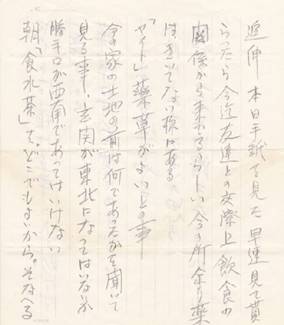 追伸 本日手紙を見た 早速見て貰
らったら今迄友達との交際上飲食の
関係から来れるらしい 今の所余り薬
はきいてない様にある
「サイト」薬草がよい上の事
今の家の土地の前は何であったかを聞いて
見る事!玄関が東北になってはいないか
勝手口が西南であってはいけない
朝、「食水茶」で、どこでもよいから。そなへる